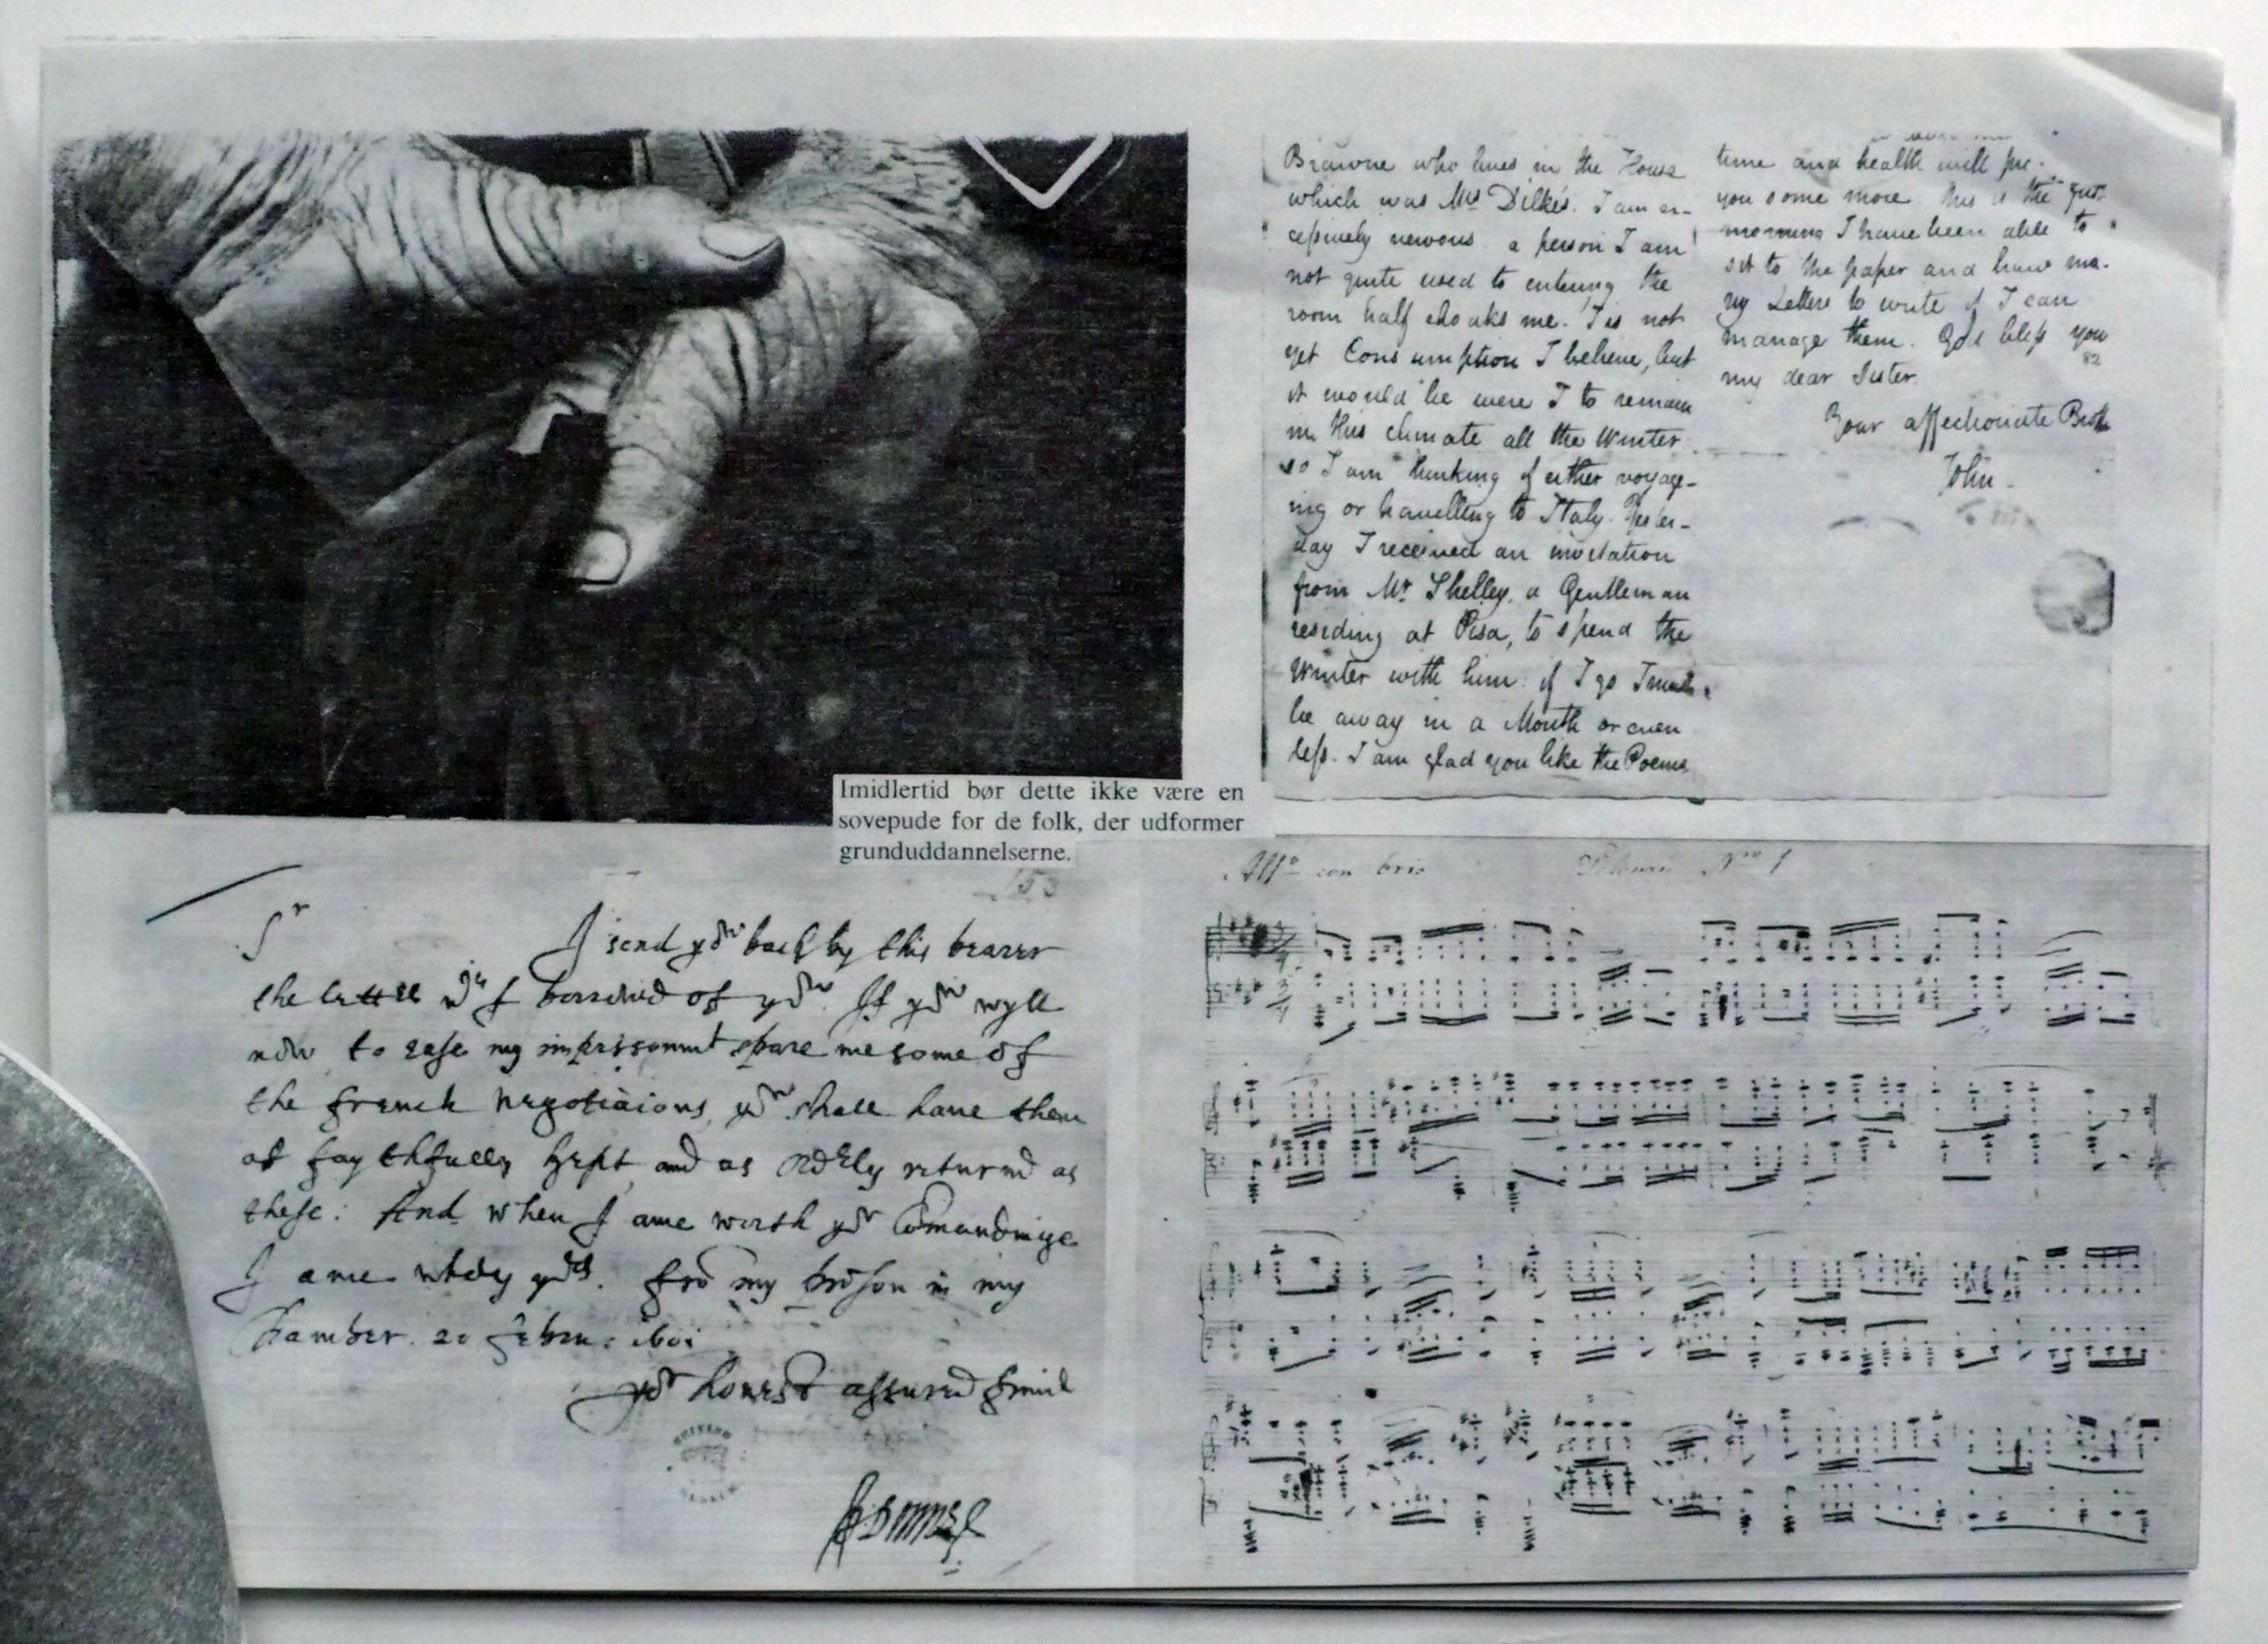 Brawne who lives in the House
which was Mrs Dilke's. I am ex-
cessively nervous. a person I am
not quite used to entering the
room half choaks me. 'T is not
yet Consumption I believe, but
it would be were I to remain
in this climate all the Winter
so I am thinking of either voyage-
ing or travelling to Italy. Yester-
day I received an invitation
from Mr Shelley, a Gentleman
residing at Pisa, to spend the
Winter with him. if I go I must
be away in a Month or even
less. I am glad you like the Poems
time and health will
you some more. This is the
morning I have been able to
sit to the paper and have ma-
ny Letters to write if I can
manage them. God bless you
82
my dear Sister.
Your affectionate
John -
Imidlertid bør dette ikke være en
sovepude for de folk, der udformer
grunduddannelserne.
153
Sr
I send yow back by this bearer
the lettre wch I borrowed of yow. If yow wyll
now to ease my imprisonmt spare me some of
the french negotiaions, yow shall have them
as faythfully kept and as ordrly returnd as
these: And when I ame worth yor Comandinge
I ame wholy yors. fro my prison in my
Chamber. 20 Febru: 1601
yor honest assured frind
BRITISH
JDonne
Allo con brio
No 1